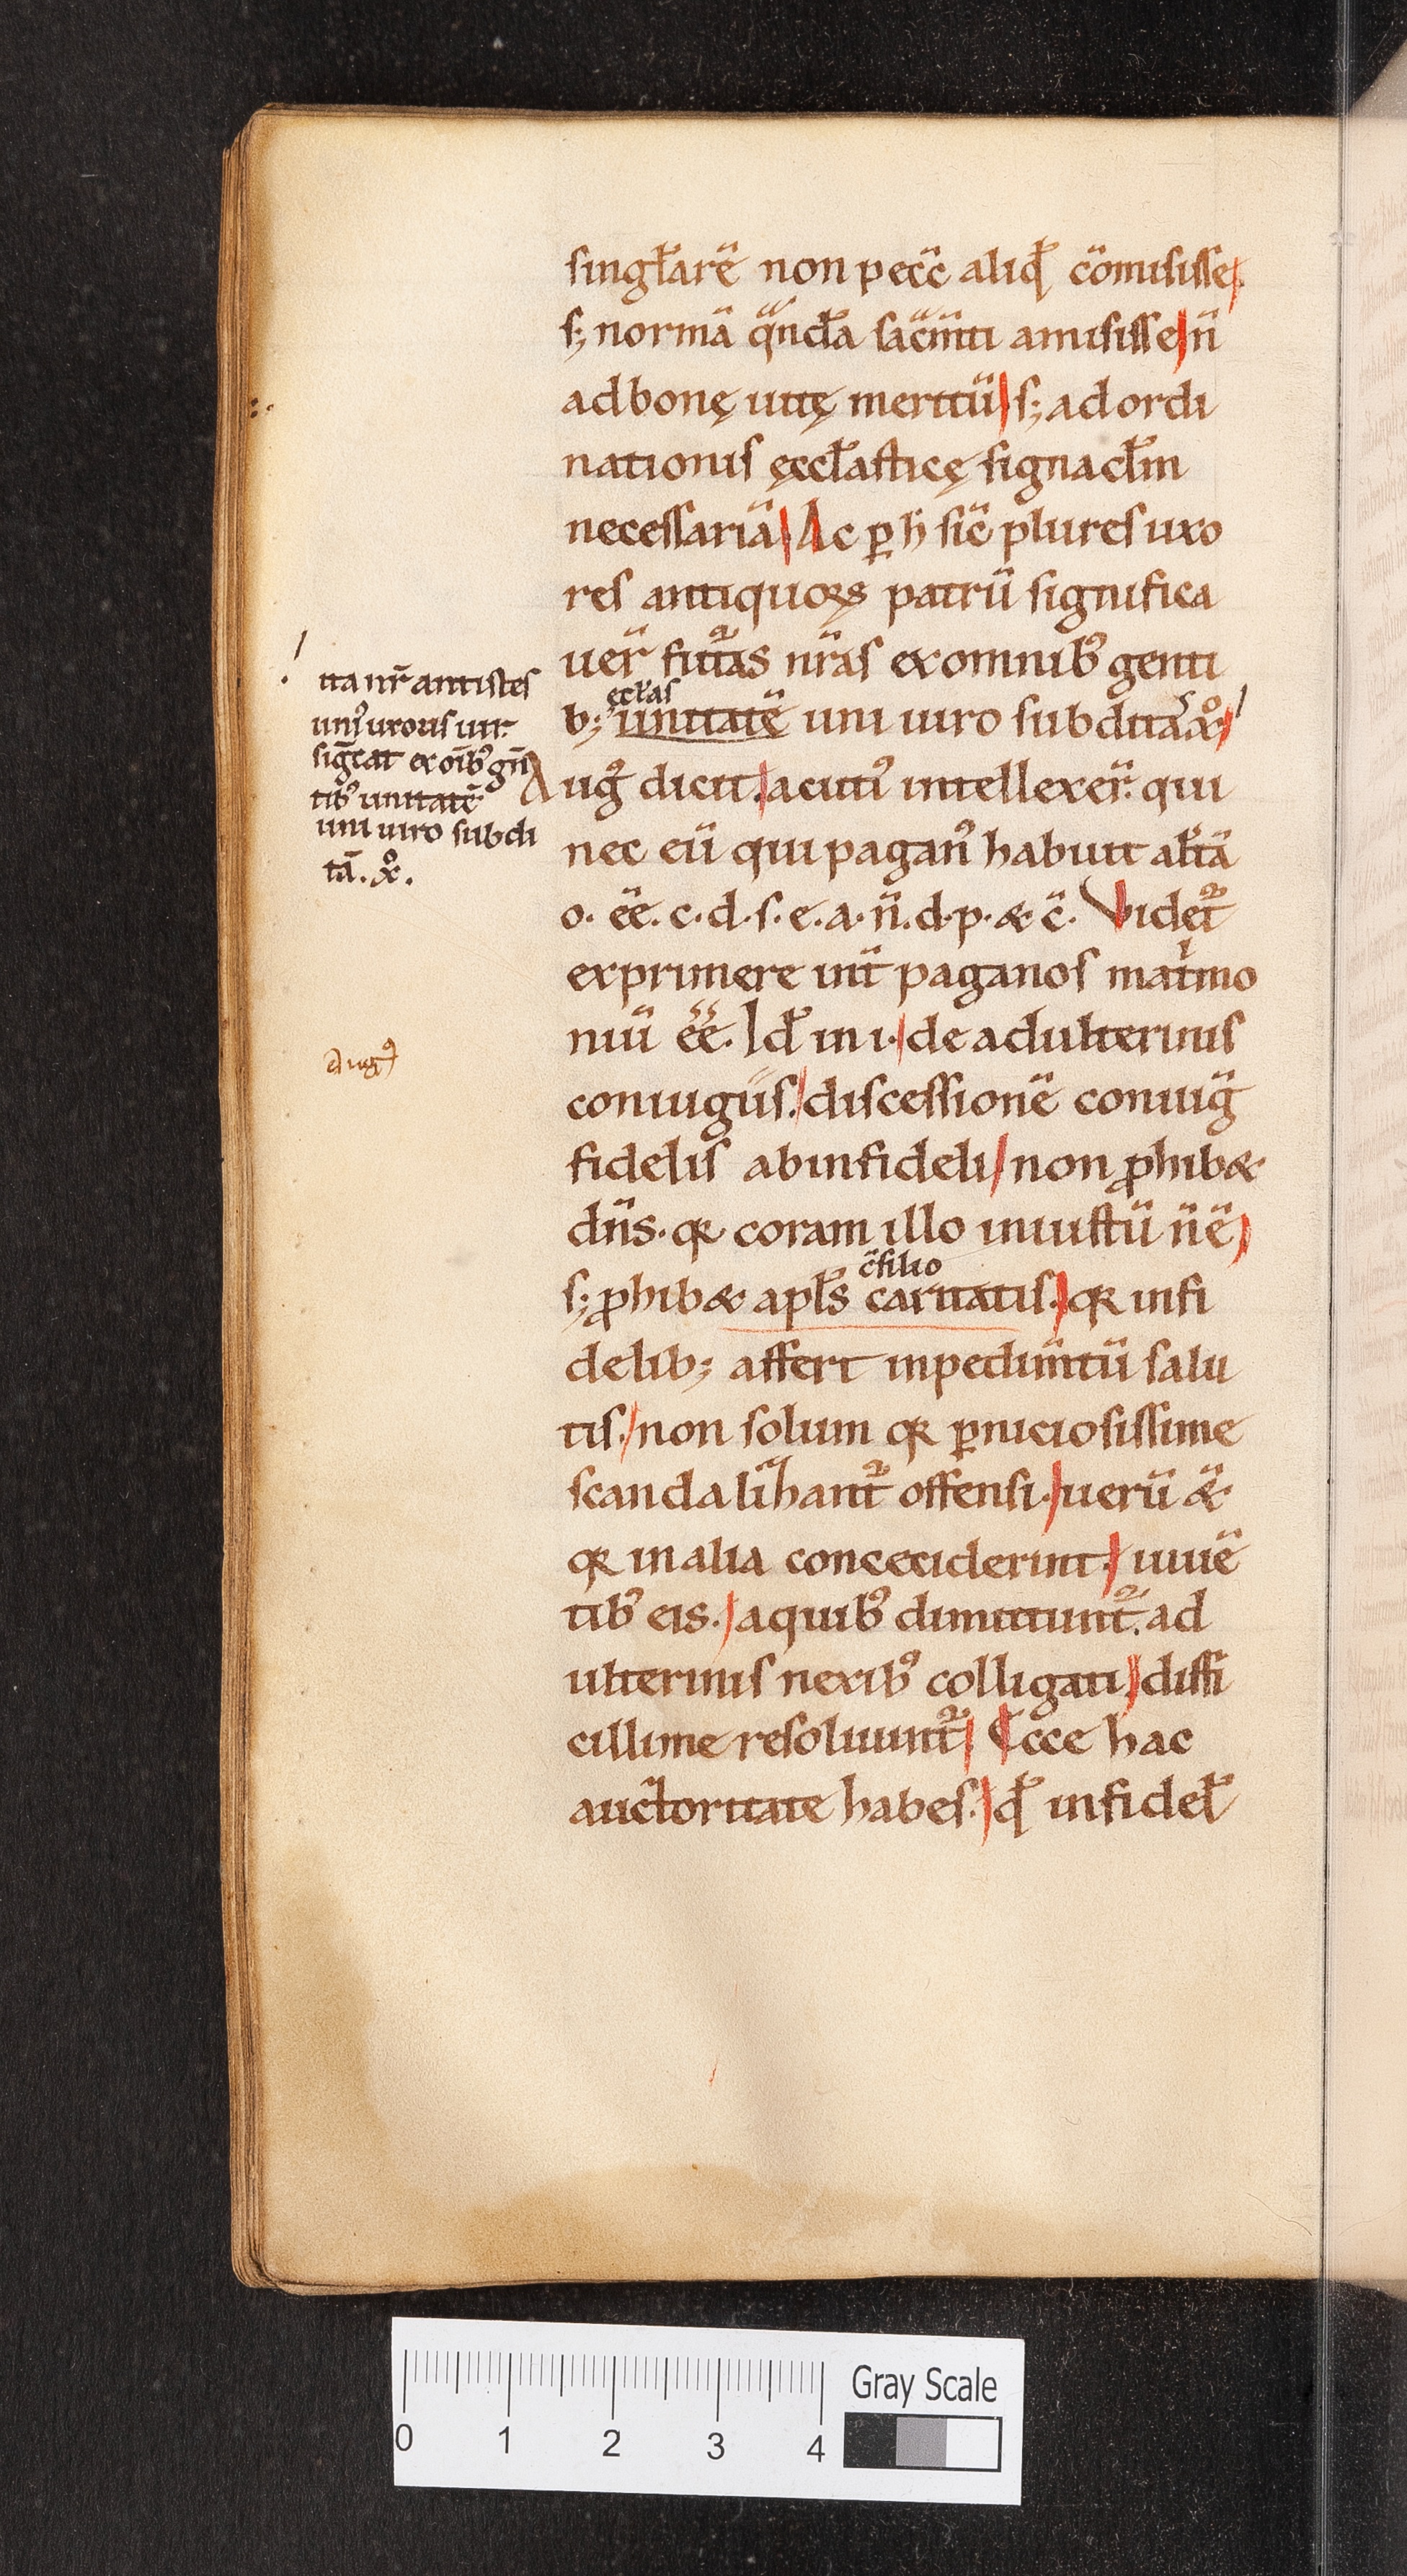 singl̄arē non pecc̄ aliq̄d cōmisisse.
s; normā q̄ndā sac̄m̄ti amisisse n̄
ad bonę uitę meritū s; ad ordi
nationis ęccl̄asticę signac̄lm
necessariā Ac ꝑ h̄ sic̄ plures uxo
res antiquoꝝ patrū significa
uer̄ futᷣas nr̄as ex omnibꝰ genti
b; unitatē uni uiro subditā xͦ
eccl̄as
Augꝰ dicit. acutiꝰ intellexer̄. qui
nec eū qui paganꝰ habuit alt̄ā
o. ēē. c. d. s. e. a. n̄. d. p. & c̄. Videt᷑
exprimere int̄ paganos matⁱmo
niū ēē. Id̄ in i. de adulterinis
coniugiis. discessionē coniuḡ
fidelis ab infideli non ꝓhib&
dn̄s. qꝛ coram illo iniustū n̄ ē
s; ꝓhib& apl̄s caritatis. qꝛ infi
c̄silio
delib; affert inpedim̄tū salu
tis. non solum qꝛ ꝑniciosissime
scandalihant᷑ offensi. uerū &
qꝛ in alia concec̄iderint. uiuē
tibꝰ eis. a quibꝰ dimittunt᷑. ad
ulterinis nexibꝰ colligati. diffi
cillime resoluunt᷑ Ecce hac
auctoritate habes. q̄d infidel̄
ita nr̄ antistes
uniꝰ uxoris uir
sig̅cat ex oīb̄ꝰ gn̄
tibꝰ unitatē
uni uiro subdi
tā. xͦ.
Augꝰ
Gray Scale
0 1 2 3 4